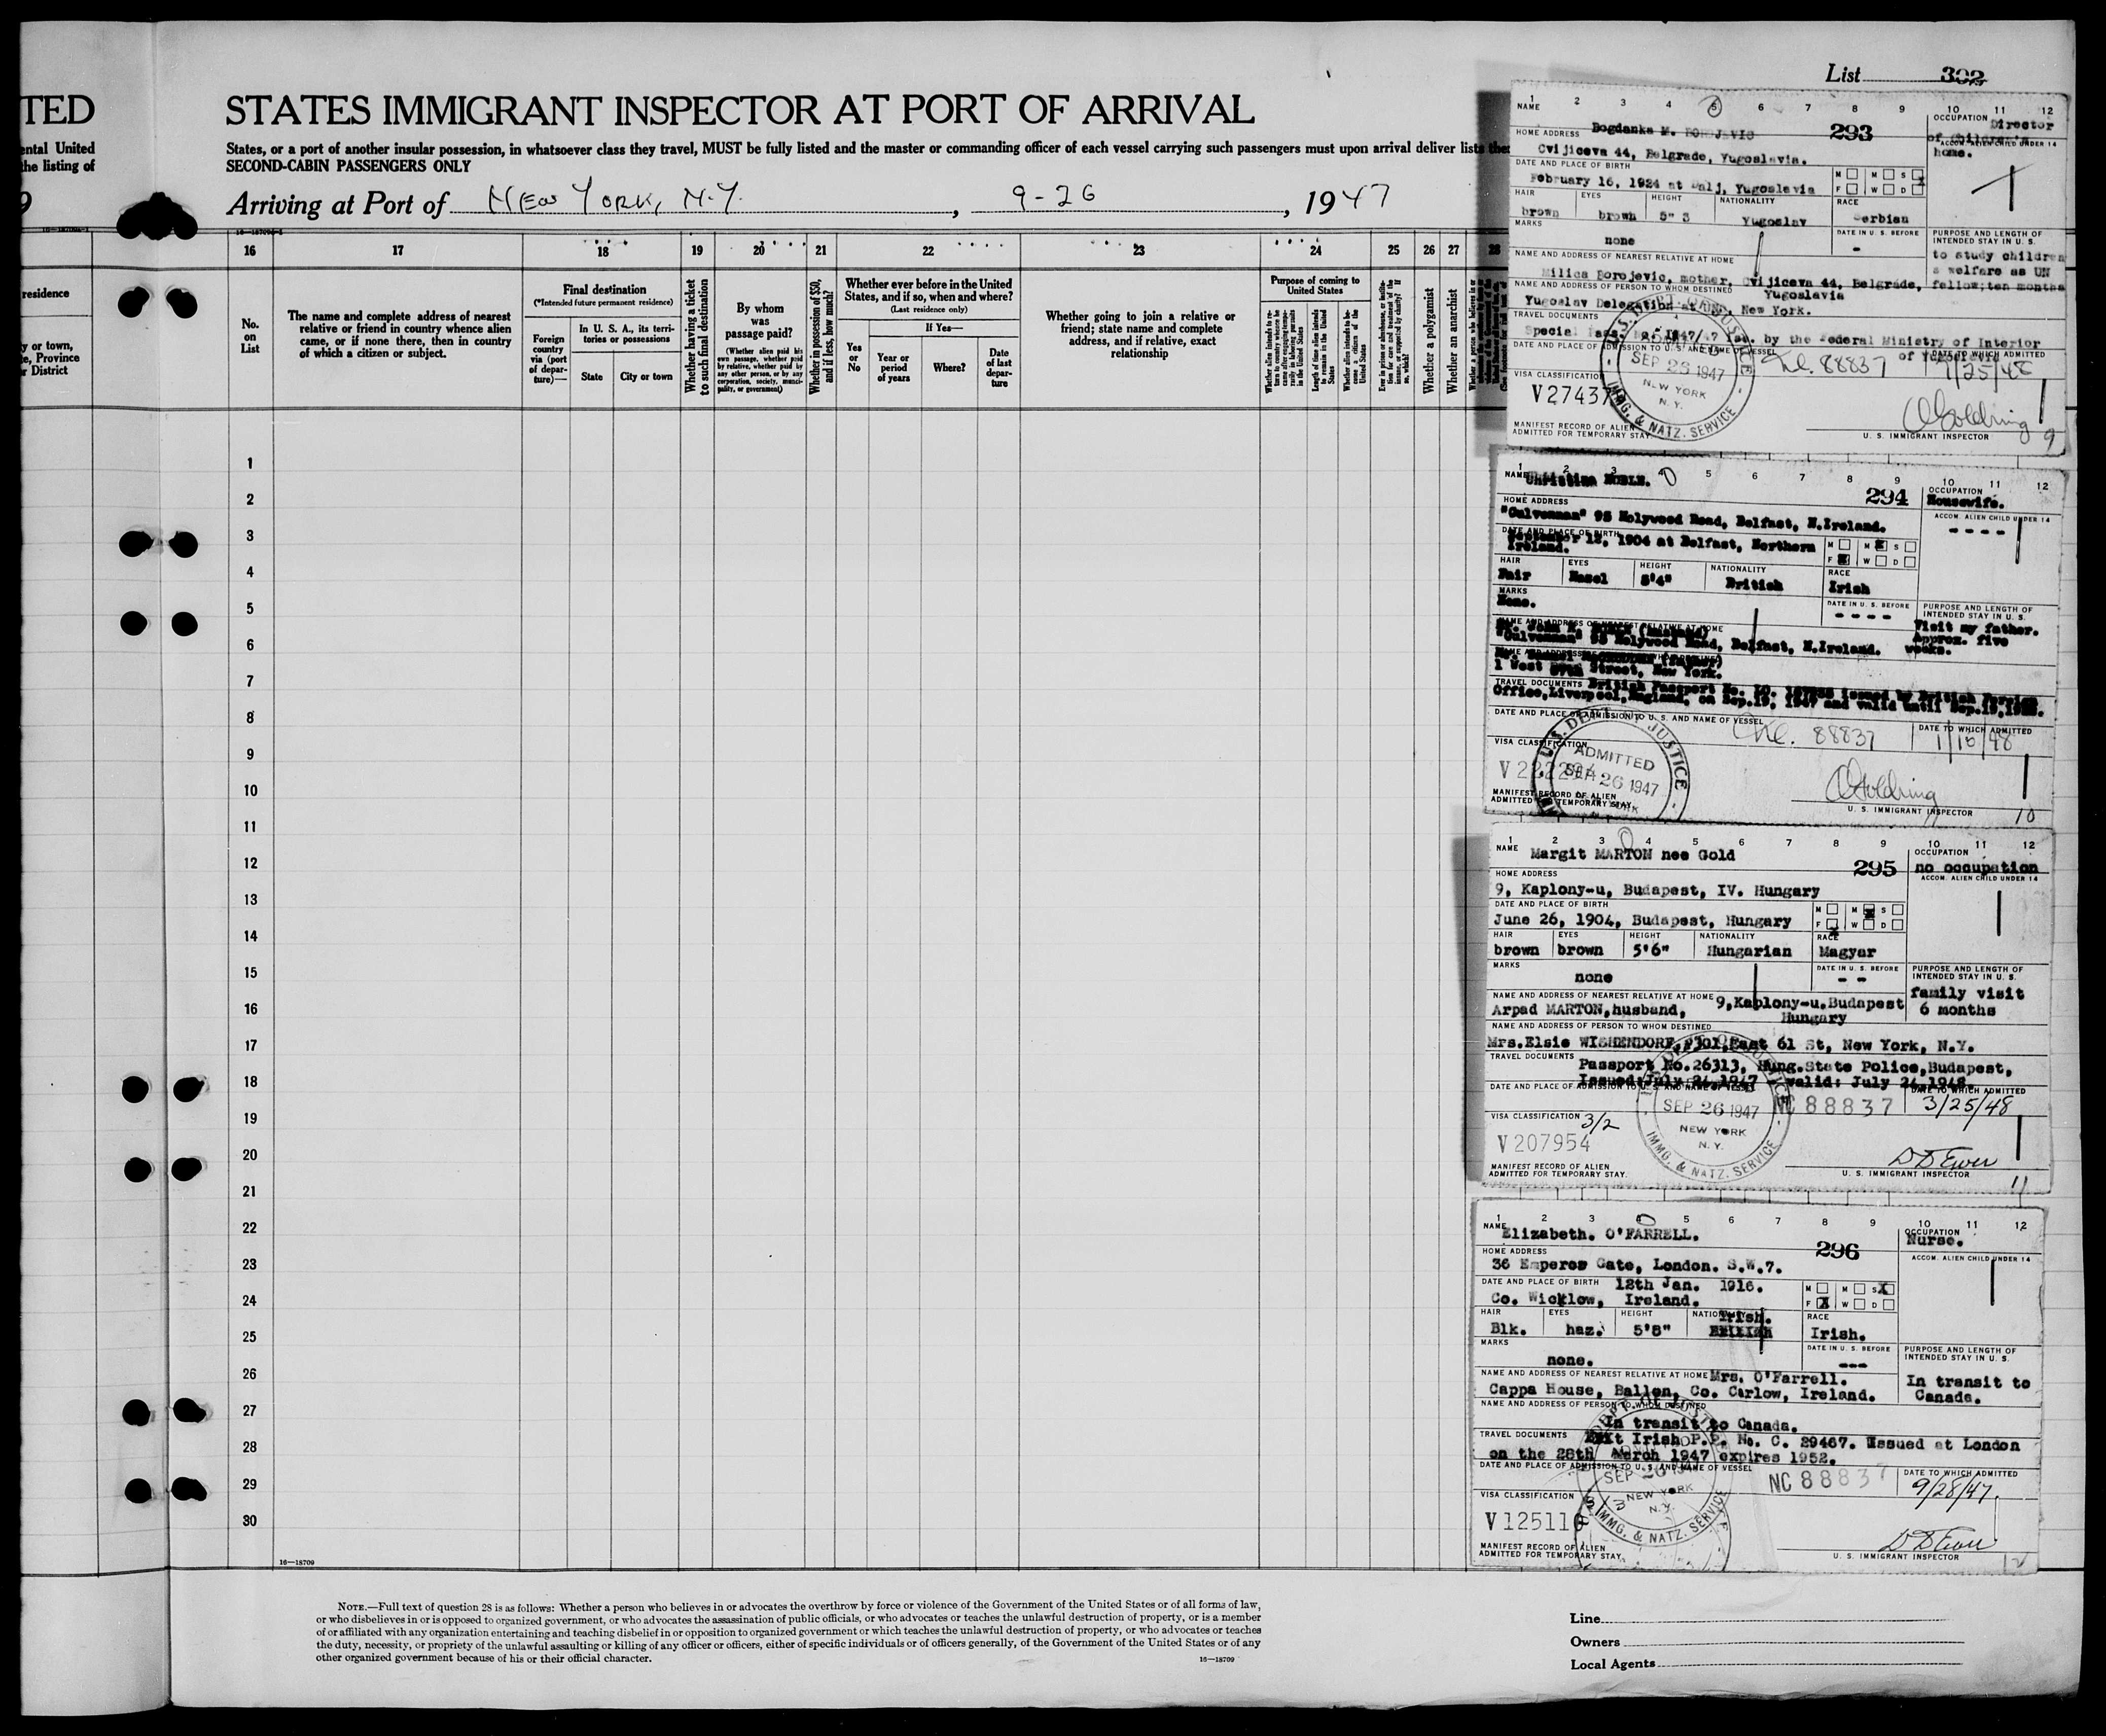 List 302
TED
ental United
the listing of
9
residence
y or town,
e, Province
r District
STATES IMMIGRANT INSPECTOR AT PORT OF ARRIVAL
States, or a port of another insular possession, in whatsoever class they travel, MUST be fully listed and the master or commanding officer of each vessel carrying such passengers must upon arrival deliver lists
SECOND-CABIN PASSENGERS ONLY
Arriving at Port of New York, N.Y., 9-26, 1947
16 17 18 19 20 21 22 23 24 25 26 27 28
No. on List
The name and complete address of nearest relative or friend in country whence alien came, or if none there, then in country of which a citizen or subject.
Final destination
(*Intended future permanent residence)
Foreign country via (port of departure)—
In U. S. A., its territories or possessions
State
City or town
Whether having a ticket to such final destination
By whom was passage paid?
(Whether alien paid his own passage, whether paid by relative, whether paid by any other person, or by any corporation, society, municipality, or government)
Whether in possession of $50, and if less, how much?
Whether ever before in the United States, and if so, when and where?
(Last residence only)
Yes or No
If Yes—
Year or period of years
Where?
Date of last departure
Whether going to join a relative or friend; state name and complete address, and if relative, exact relationship
Purpose of coming to United States
Length of time alien intends to remain in the United States
Whether alien intends to become a citizen of the United States
Whether a polygamist
Whether an anarchist
1
2
3
4
5
6
7
8
9
10
11
12
13
14
15
16
17
18
19
20
21
22
23
24
25
26
27
28
29
30
16—18709
NOTE.—Full text of question 28 is as follows: Whether a person who believes in or advocates the overthrow by force or violence of the Government of the United States or of all forms of law,
or who disbelieves in or is opposed to organized government, or who advocates the assassination of public officials, or who advocates or teaches the unlawful destruction of property, or is a member
of or affiliated with any organization entertaining and teaching disbelief in or opposition to organized government or which teaches the unlawful destruction of property, or who advocates or teaches
the duty, necessity, or propriety of the unlawful assaulting or killing of any officer or officers, either of specific individuals or of officers generally, of the Government of the United States or of any
other organized government because of his or their official character.
16—18709
Line
Owners
Local Agents
1 2 3 4 5 6 7 8 9 10 11 12
NAME Bogdanka M. 293
OCCUPATION Director of Children's home.
ACCOM. ALIEN CHILD UNDER 14
HOME ADDRESS
Cvijiceva 44, Belgrade, Yugoslavia.
DATE AND PLACE OF BIRTH
February 16, 1924 at Dalj, Yugoslavia
M M S
F W D
HAIR EYES HEIGHT NATIONALITY RACE
brown brown 5" 3 Yugoslav Serbian
MARKS
none
DATE IN U. S. BEFORE
-
PURPOSE AND LENGTH OF INTENDED STAY IN U. S.
to study children
s welfare as UN
fellow;ten months
NAME AND ADDRESS OF NEAREST RELATIVE AT HOME
Milica Borojevic, mother, Cvijiceva 44, Belgrade,
Yugoslavia
NAME AND ADDRESS OF PERSON TO WHOM DESTINED
Yugoslav Delegation at UN, New York.
TRAVEL DOCUMENTS
by the Federal Ministry of Interior
of Yugoslavia
DATE AND PLACE OF ADMISSION TO U. S. AND NAME OF VESSEL
88837
DATE TO WHICH ADMITTED
SEP 26 1947
NEW YORK
N. Y.
IMMG. & NATZ. SERVICE
VISA CLASSIFICATION
V27437
MANIFEST RECORD OF ALIEN
ADMITTED FOR TEMPORARY STAY
Goldring
U. S. IMMIGRANT INSPECTOR
9
1 2 3 4 5 6 7 8 9 10 11 12
NAME Christina NOBLE. 294
OCCUPATION
Housewife.
ACCOM. ALIEN CHILD UNDER 14
----
HOME ADDRESS
"Culvennan" 95 Holywood Road, Belfast, N.Ireland.
DATE AND PLACE OF BIRTH
1904 at Belfast, Northern
Ireland.
M M S
F W D
HAIR EYES HEIGHT NATIONALITY RACE
Fair Hazel 5'4" British Irish
MARKS
None.
DATE IN U. S. BEFORE
----
PURPOSE AND LENGTH OF INTENDED STAY IN U. S.
Visit my father.
Approx. five
weeks.
NAME AND ADDRESS OF NEAREST RELATIVE AT HOME
"Culvennan" 95 Holywood Road, Belfast, N.Ireland.
1 West Street, New York.
TRAVEL DOCUMENTS British Passport issued by British Foreign
Office,Liverpool,England, on Sep.19, 1947 and valid until
DATE AND PLACE OF ADMISSION TO U. S. AND NAME OF VESSEL
88837
DATE TO WHICH ADMITTED
U.S. DEPT. OF JUSTICE
ADMITTED
SEP 26 1947
VISA CLASSIFICATION
MANIFEST RECORD OF ALIEN
ADMITTED FOR TEMPORARY STAY
Goldring
U. S. IMMIGRANT INSPECTOR
10
1 2 3 4 5 6 7 8 9 10 11 12
NAME Margit MARTON nee Gold 295
OCCUPATION
no occupation
ACCOM. ALIEN CHILD UNDER 14
HOME ADDRESS
9, Kaplony-u, Budapest, IV. Hungary
DATE AND PLACE OF BIRTH
June 26, 1904, Budapest, Hungary
M M S
F W D
HAIR EYES HEIGHT NATIONALITY RACE
brown brown 5'6" Hungarian Magyar
MARKS
none
DATE IN U. S. BEFORE
--
PURPOSE AND LENGTH OF INTENDED STAY IN U. S.
family visit
6 months
NAME AND ADDRESS OF NEAREST RELATIVE AT HOME 9,Kaplony-u.Budapest
Arpad MARTON,husband, Hungary
NAME AND ADDRESS OF PERSON TO WHOM DESTINED
Mrs.Elsie WISHENDORF, 301,East 61 St, New York, N.Y.
TRAVEL DOCUMENTS Passport No.26313, Hung.State Police,Budapest,
Issued:July 24,1947 - valid: July 24,1948.
DATE AND PLACE OF ADMISSION TO U. S. AND NAME OF VESSEL
DATE TO WHICH ADMITTED
SEP 26 1947
NC 88837
3/25/48
NEW YORK
N. Y.
IMMG. & NATZ. SERVICE
VISA CLASSIFICATION 3/2
V207954
MANIFEST RECORD OF ALIEN
ADMITTED FOR TEMPORARY STAY.
U. S. IMMIGRANT INSPECTOR
11
1 2 3 4 5 6 7 8 9 10 11 12
NAME Elizabeth. O'FARRELL. 296
OCCUPATION
Nurse.
ACCOM. ALIEN CHILD UNDER 14
HOME ADDRESS
36 Emperor Gate, London. S.W.7.
DATE AND PLACE OF BIRTH 12th Jan. 1916.
Co. Wicklow, Ireland.
M M S X
F X W D
HAIR EYES HEIGHT NATIONALITY RACE
Blk. haz. 5'8" Irish. Irish.
MARKS
none.
DATE IN U. S. BEFORE
---
PURPOSE AND LENGTH OF INTENDED STAY IN U. S.
In transit to
Canada.
NAME AND ADDRESS OF NEAREST RELATIVE AT HOME Mrs. O'Farrell.
Cappa House, Ballon, Co. Carlow, Ireland.
NAME AND ADDRESS OF PERSON TO WHOM DESTINED
In transit to Canada.
TRAVEL DOCUMENTS Irish P.P. No. C. 29467. Issued at London
on the 28th March 1947 expires 1952.
DATE AND PLACE OF ADMISSION TO U. S. AND NAME OF VESSEL
NC 88837
DATE TO WHICH ADMITTED
9/28/47.
SEP 26
NEW YORK
N. Y.
IMMG. & NATZ. SERVICE
VISA CLASSIFICATION
V125110
MANIFEST RECORD OF ALIEN
ADMITTED FOR TEMPORARY STAY
U. S. IMMIGRANT INSPECTOR
12